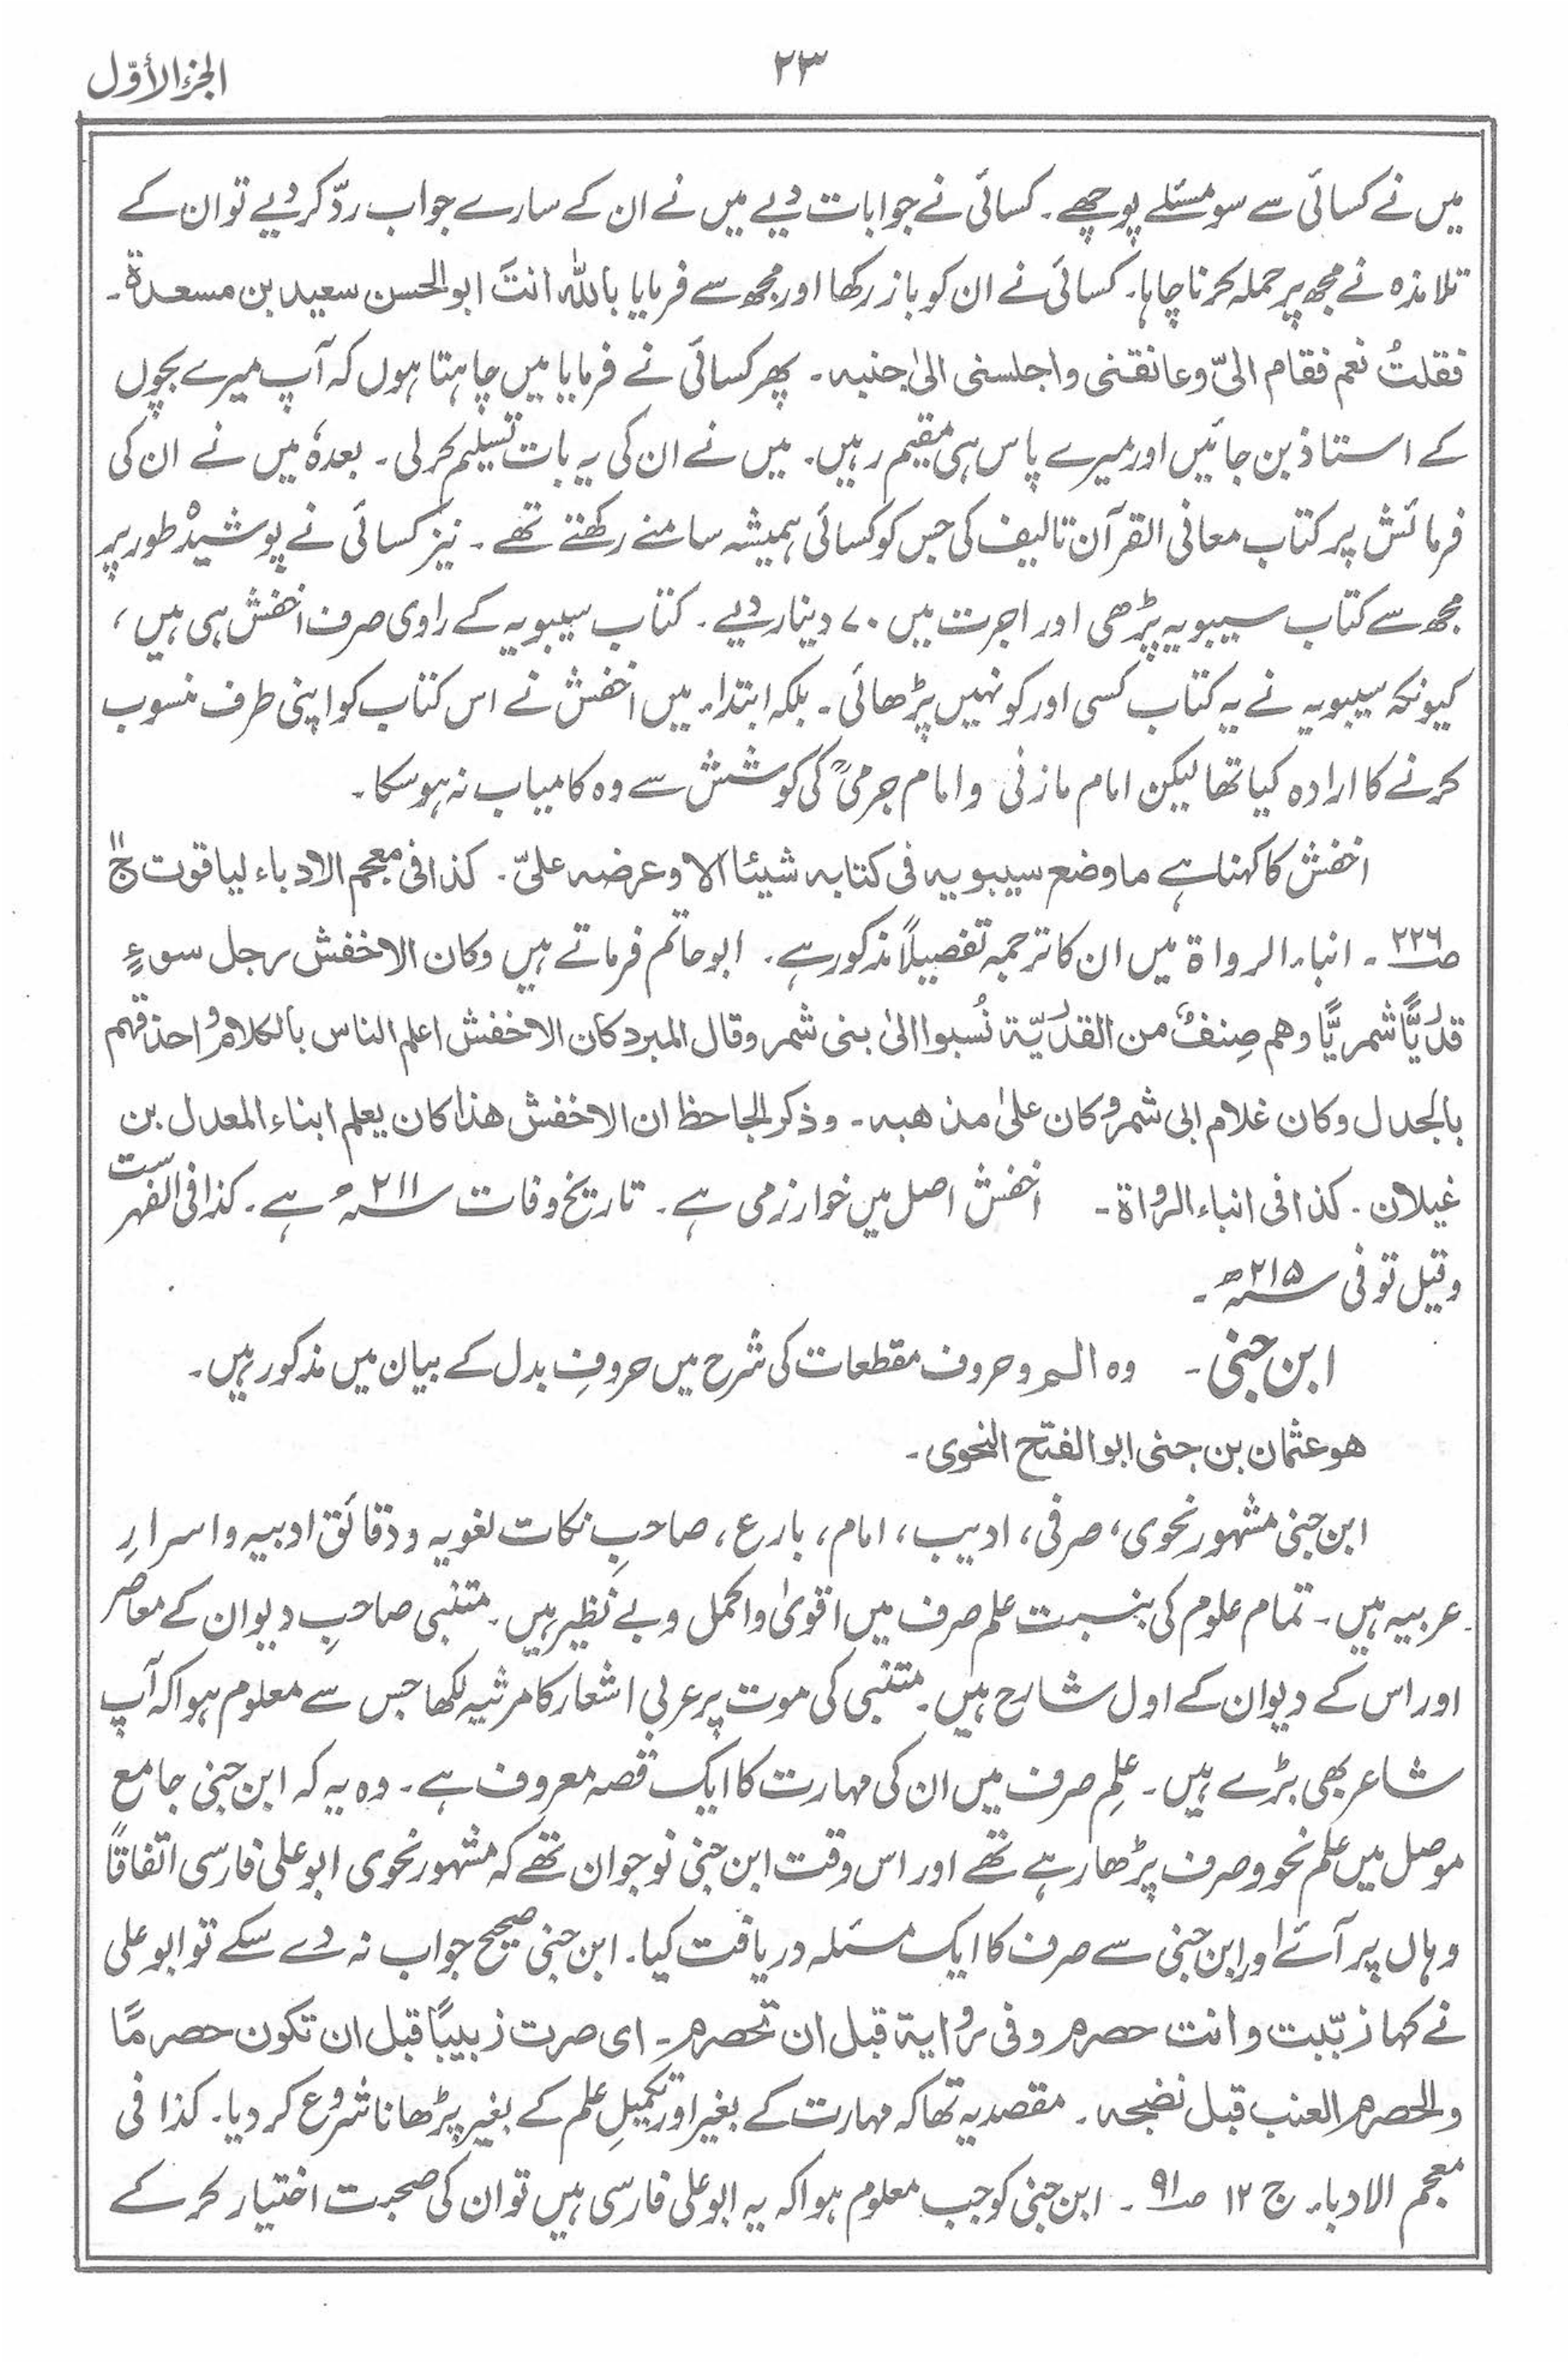 الجزء الأوّل
۲۳
میں نے کسائی سے سو مسئلے پوچھے۔ کسائی نے جوابات دیے میں نے ان کے سارے جواب ردّ کر دیے تو ان کے
تلامذہ نے مجھ پر حملہ کرنا چاہا۔ کسائی نے ان کو باز رکھا اور مجھ سے فرمایا باللّٰہ انتَ ابوالحسن سعید بن مسعدۃ۔
فقلتُ نعم فقام الیّ وعانقنی واجلسنی الیٰ جنبہ۔ پھر کسائی نے فرمایا میں چاہتا ہوں کہ آپ میرے بچوں
کے استاذ بن جائیں اور میرے پاس ہی مقیم رہیں۔ میں نے ان کی یہ بات تسلیم کر لی۔ بعدہٗ میں نے ان کی
فرمائش پر کتاب معانی القرآن تالیف کی جس کو کسائی ہمیشہ سامنے رکھتے تھے۔ نیز کسائی نے پوشیدہ طور پر
مجھ سے کتاب سیبویہ پڑھی اور اجرت میں ۷۰ دینار دیے۔ کتاب سیبویہ کے راوی صرف اخفش ہی ہیں،
کیونکہ سیبویہ نے یہ کتاب کسی اور کو نہیں پڑھائی۔ بلکہ ابتداء میں اخفش نے اس کتاب کو اپنی طرف منسوب
کرنے کا ارادہ کیا تھا لیکن امام مازنی و امام جرمیؒ کی کوشش سے وہ کامیاب نہ ہو سکا۔
اخفش کا کہنا ہے ما وضع سیبویہ فی کتابہ شیئا الا وعرضہ علیّ۔ کذا فی معجم الادباء لیاقوت ج۱۱
ص۲۲۶۔ انباء الرواۃ میں ان کا ترجمہ تفصیلاً مذکور ہے۔ ابوحاتم فرماتے ہیں وکان الاخفش رجل سوءٍ
قدَریًّا شمریًّا وھم صِنفٌ من القدَریّۃ نُسبوا الیٰ بنی شمر وقال المبرد کان الاخفش اعلم الناس بالکلام واحذقھم
بالجدل وکان غلام ابی شمر وکان علیٰ مذھبہ۔ وذکر الجاحظ ان الاخفش ھذا کان یعلم ابناء المعدل بن
غیلان۔ کذا فی انباء الرواۃ۔ اخفش اصل میں خوارزمی ہے۔ تاریخ وفات سنہ ۲۱۱ھ ہے۔ کذا فی الفہرست
وقیل توفی سنہ ۲۱۵ھ۔
ابن جنی۔ وہ الٓـمٓ و حروف مقطعات کی شرح میں حروفِ بدل کے بیان میں مذکور ہیں۔
ھو عثمان بن جنی ابوالفتح النحوی۔
ابن جنی مشہور نحوی، صرفی، ادیب، امام، بارع، صاحبِ نکات لغویہ و دقائق ادبیہ و اسرارِ
عربیہ ہیں۔ تمام علوم کی بنسبت علم صرف میں اقویٰ و اکمل و بے نظیر ہیں۔ متنبی صاحبِ دیوان کے معاصر
اور اس کے دیوان کے اول شارح ہیں۔ متنبی کی موت پر عربی اشعار کا مرثیہ لکھا جس سے معلوم ہوا کہ آپ
شاعر بھی بڑے ہیں۔ علمِ صرف میں ان کی مہارت کا ایک قصہ معروف ہے۔ وہ یہ کہ ابن جنی جامع
موصل میں علم نحو و صرف پڑھا رہے تھے اور اس وقت ابن جنی نوجوان تھے کہ مشہور نحوی ابوعلی فارسی اتفاقاً
وہاں پر آئے اور ابن جنی سے صرف کا ایک مسئلہ دریافت کیا۔ ابن جنی صحیح جواب نہ دے سکے تو ابوعلی
نے کہا زبّبت وانت حصرم وفی روایۃ قبل ان تحصرم۔ ای صرت زبیبًا قبل ان تکون حصرمًا
والحصرم العنب قبل نضجہ۔ مقصد یہ تھا کہ مہارت کے بغیر اور تکمیلِ علم کے بغیر پڑھانا شروع کر دیا۔ کذا فی
معجم الادباء ج ۱۲ ص۹۱۔ ابن جنی کو جب معلوم ہوا کہ یہ ابوعلی فارسی ہیں تو ان کی صحبت اختیار کر کے